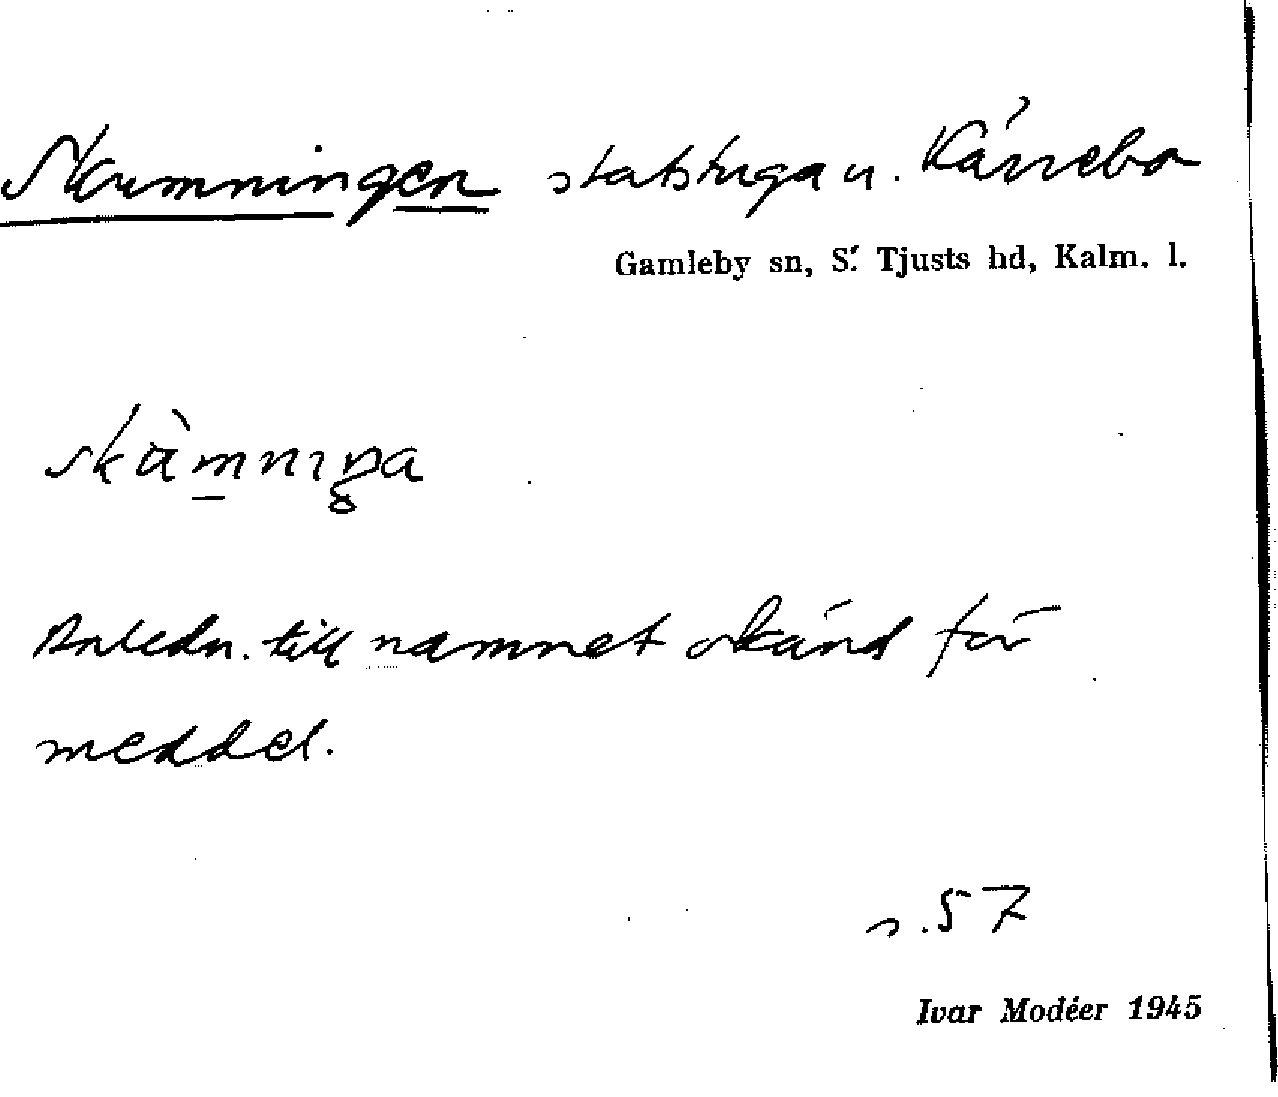 Skumningen statstuga u. Kärrebo
Gamleby sn, S. Tjusts hd, Kalm. l.
skàmnıŋa
Anledn. till namnet okänd för
meddel.
s. 57
Ivar Modéer 1945